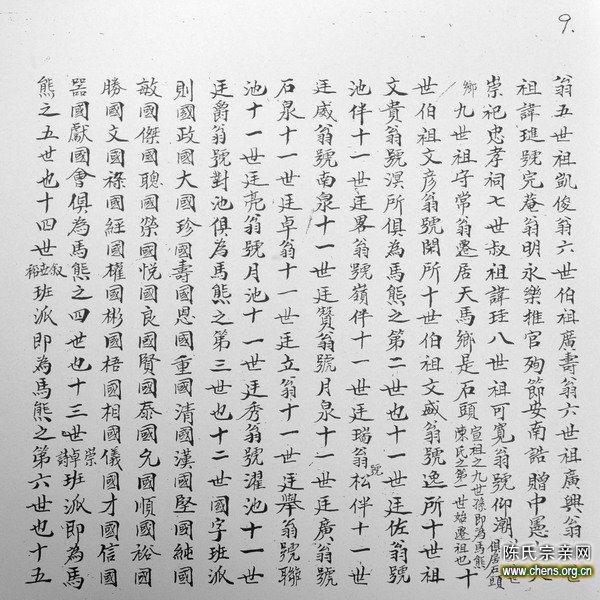 9.
翁五世祖凱俊翁六世伯祖廣壽翁六世祖廣興翁
祖諱璡號完菴翁明永樂推官殉節安南誥贈中憲
崇祀忠孝祠七世叔祖諱珪八世祖可寬翁號仰潮
鄉九世祖守常翁遷居天馬鄉是石頭陳氏之第一世始遷祖也十
宣祖之九世孫即為馬熊
俱居石頭
世伯祖文彥翁號閑所十世伯祖文斌翁號逸所十世祖
文貴翁號溟所俱為馬熊之第二世也十一世廷佐翁號
池伴十一世廷畧翁號嶺伴十一世廷瑞翁號松伴十一世
廷威翁號南泉十一世廷贊翁號月泉十一世廷廣翁號
石泉十一世廷卓翁十一世廷立翁十一世廷舉翁號聯
池十一世廷亮翁號月池十一世廷秀翁號濯池十一世
廷爵翁號對池俱為馬熊之第三世也十二世國字班派
則國政國大國珍國壽國恩國重國清國漢國堅國純國
敏國傑國聰國榮國悅國良國賢國泰國允國順國裕國
勝國文國祿國經國權國彬國梧國相國儀國才國信國
器國獻國會俱為馬熊之四世也十三世崇卓詩班派即為馬
熊之五世也十四世叙立裕班派即為馬熊之第六世也十五
陈氏宗亲网
www.chens.org.cn